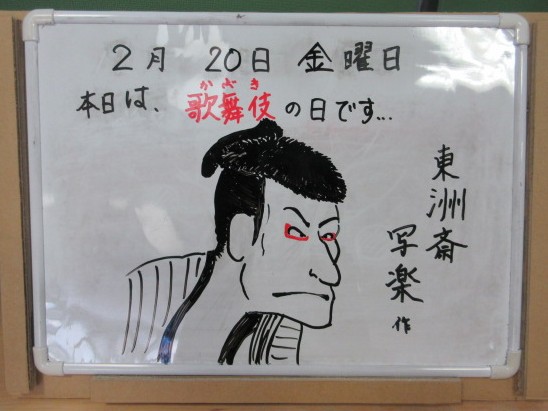 2月 20日 金曜日
かぶき
本日は、歌舞伎の日です...
東洲斎
写楽 作